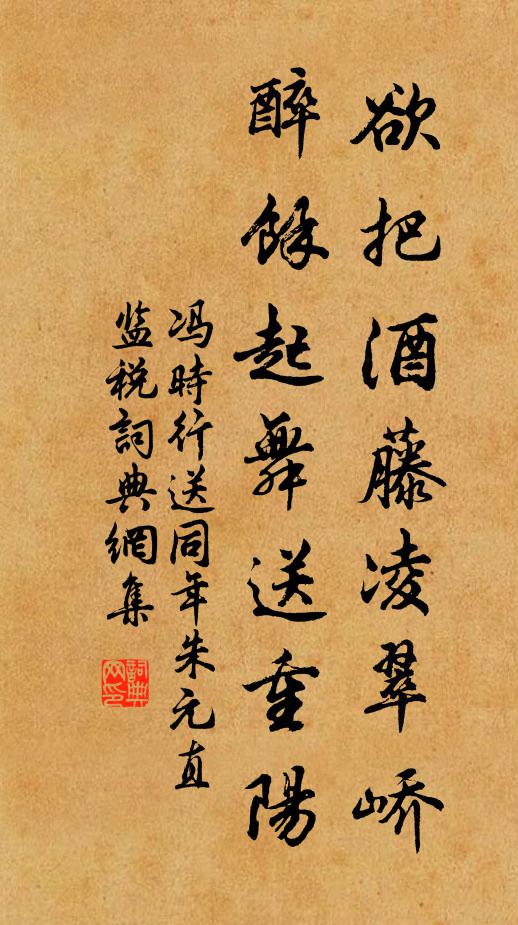 欲把酒藤凌翠峤
醉馀起舞送重陽
冯時行送同年朱元直
监税詞典網集
詞典网印